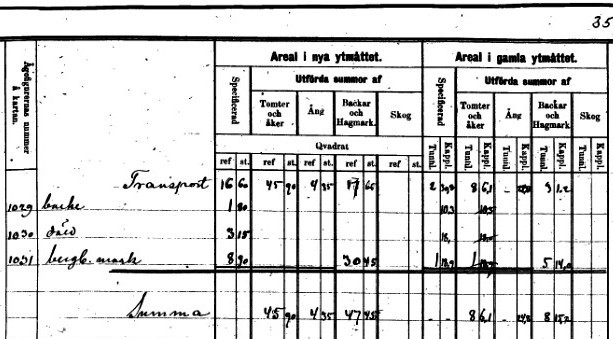 35
Ägofigurernas nummer å kartan.
Areal i nya ytmåttet. Areal i gamla ytmåttet.
Specificerad Utförda summor af Specificerad Utförda summor af
Tomter och åker Äng Backar och Hagmark. Skog Tomter och åker Äng Backar och Hagmark. Skog
Qvadrat
ref st. ref st. ref st. ref st. ref st. Tunnl. Kappl. Tunnl. Kappl. Tunnl. Kappl. Tunnl. Kappl. Tunnl.
Transport 16 60 45 90 4 35 17 65 2 8 6,1 3 1.2
1029 backe 1 80 10,3
1030 3 15
1031 bergb. mark 8 90 30 45 1 18,9 5 14,0
Summa 45 90 4 35 47 8 6,1 - 8 15,2